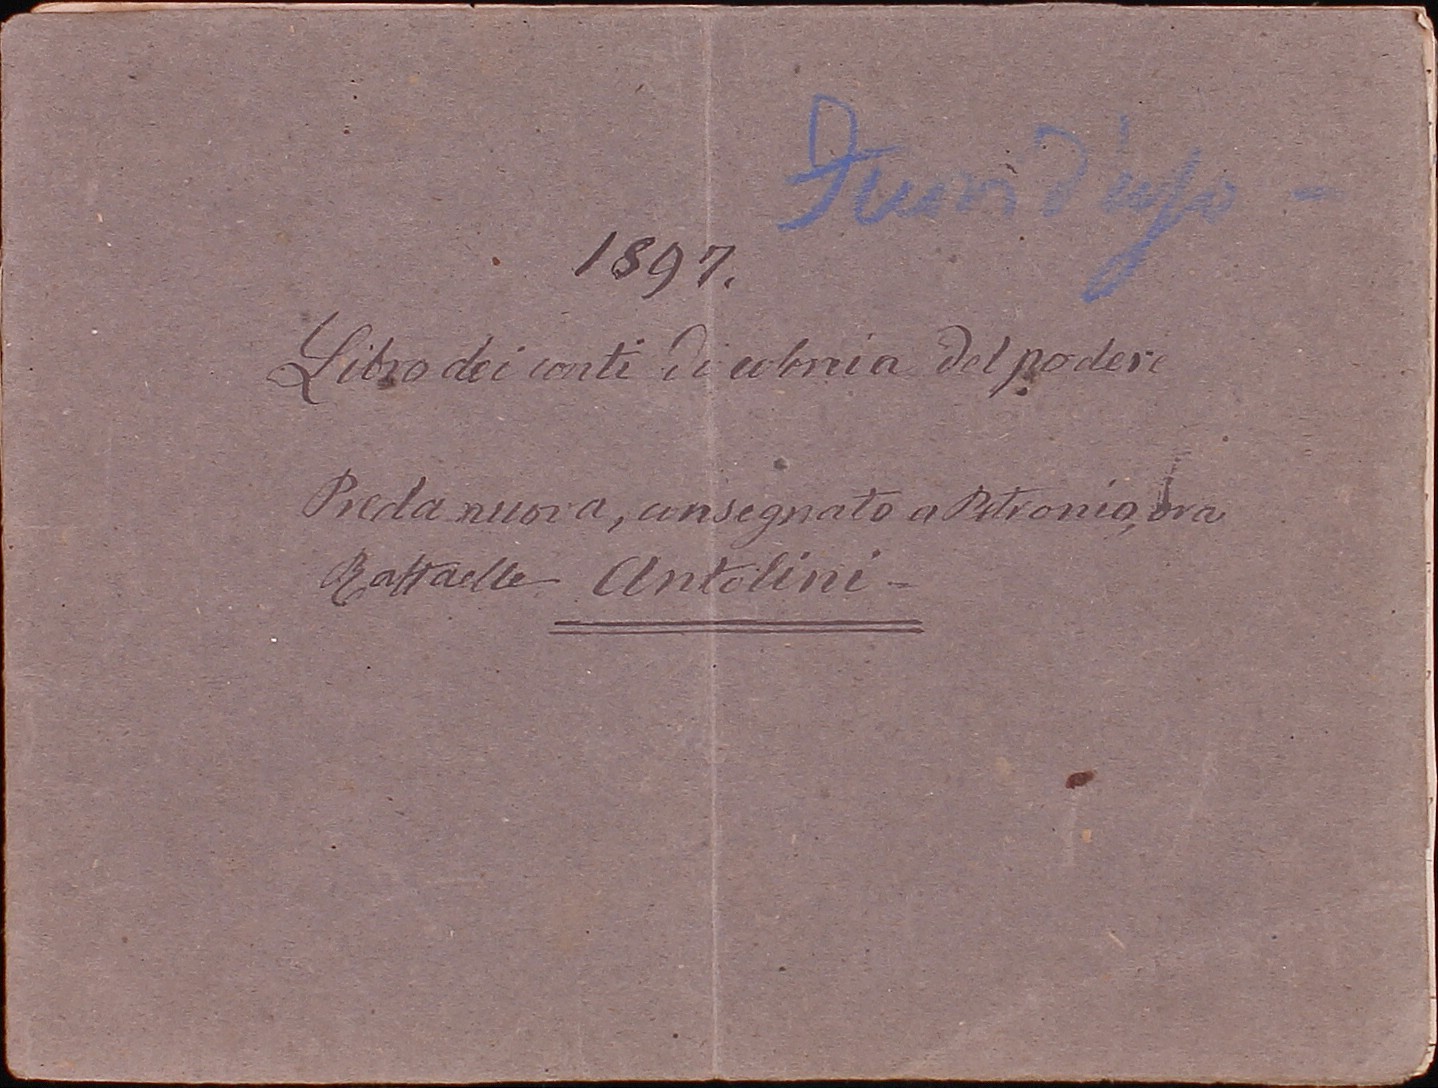 Fuori d'uso -
1897.
Libro dei conti di colonia del podere
Preda nuova, consegnato a Petronio, ora
Raffaelle Antolini -